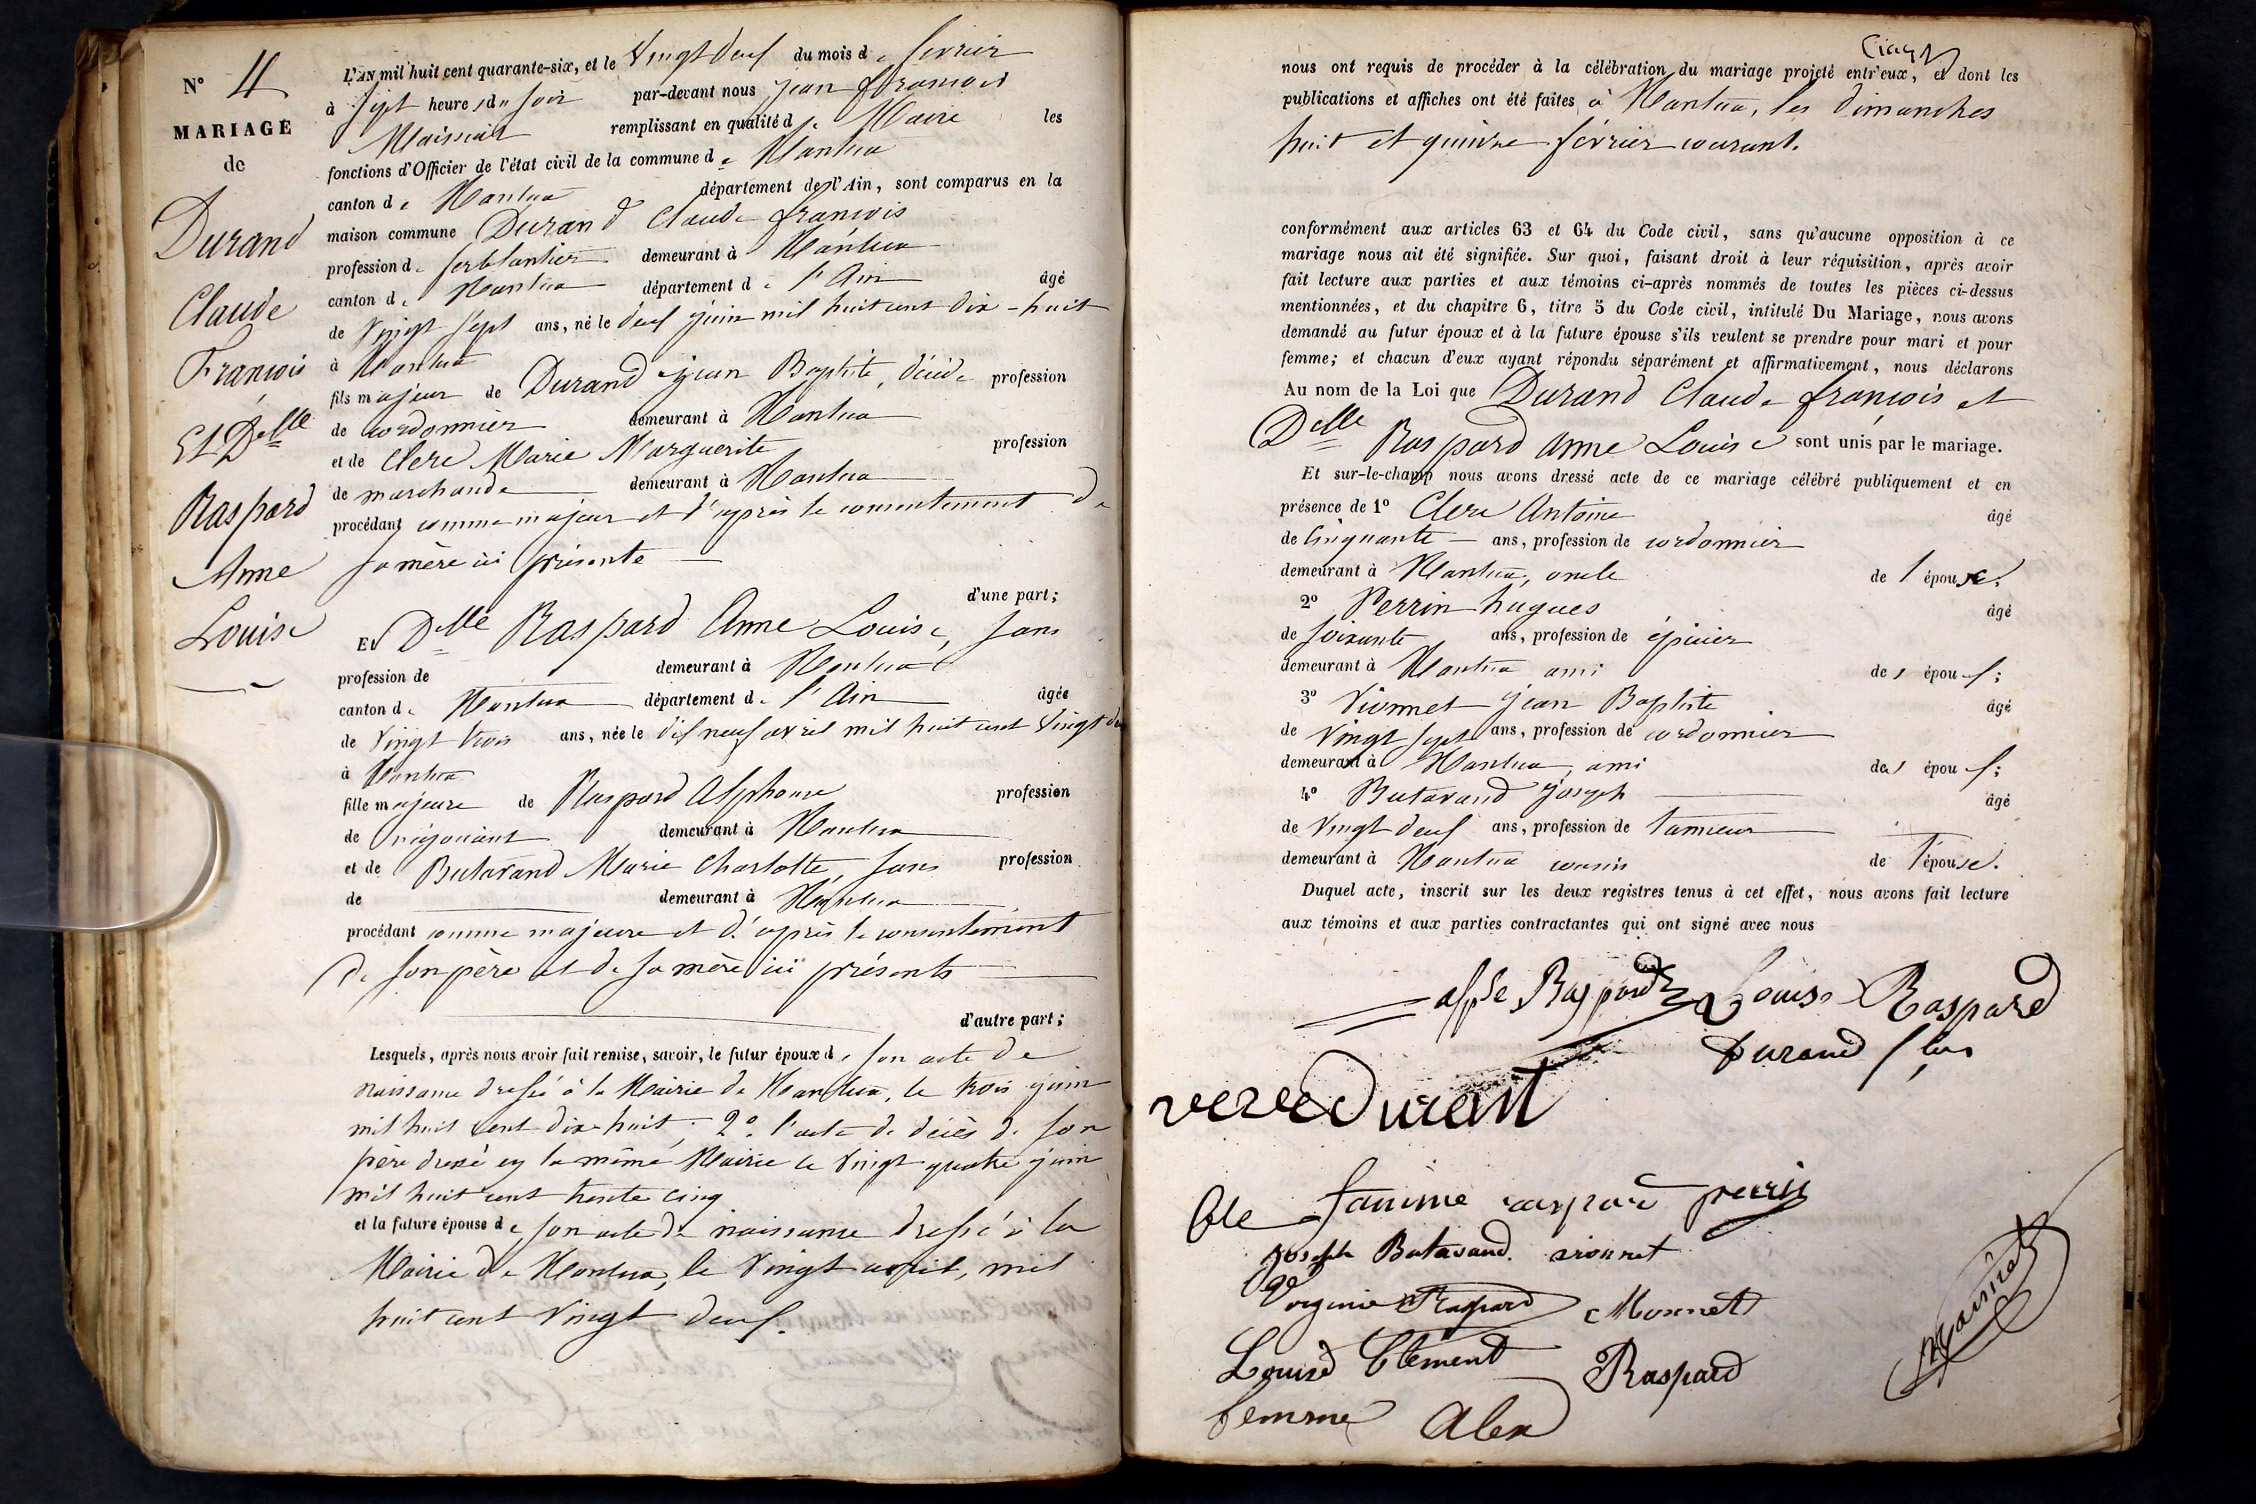 N° 4
MARIAGE
de
Durand
Claude
François
Et Delle
Raspard
Anne
Louise
L'AN mil huit cent quarante-six, et le Vingt deux du mois de fevrier
à Sept heures du Soir par-devant nous jean françois
remplissant en qualité de Maire les
fonctions d'Officier de l'état civil de la commune de Nantua
canton de Nantua département de l'Ain, sont comparus en la
maison commune Durand Claude françois
profession de ferblantier demeurant à Nantua
canton de Nantua département de l'Ain âgé
de Vingt Sept ans, né le deux juin mil huit cent dix-huit
à Nantua
fils majeur de Durand jean Baptiste, décédé profession
de cordonnier demeurant à Nantua
et de Clerc Marie Marguerite profession
de marchande demeurant à Nantua
procédant comme majeur et d'après le consentement de
sa mère ici présente
d'une part;
Et Delle Raspard Anne Louise, Sans
profession de demeurant à Nantua
canton de Nantua département de l'Ain âgée
de Vingt trois ans, née le dix neuf avril mil huit cent Vingt deux
à Nantua
fille majeure de Raspard Alphonse profession
de négociant demeurant à Nantua
et de Butavand Marie Charlotte, Sans profession
de demeurant à Nantua
procédant comme majeure et d'après le consentement
de son père et de sa mère ici présents
d'autre part;
Lesquels, après nous avoir fait remise, savoir, le futur époux de son acte de
naissance dressé à la Mairie de Nantua, le trois juin
mil huit cent dix-huit; 2° l'acte de décès de son
père dressé en la même Mairie le Vingt quatre juin
mil huit cent trente cinq
et la future épouse de son acte de naissance dressé à la
Mairie de Nantua, le Vingt avril, mil
huit cent Vingt deux.
nous ont requis de procéder à la célébration du mariage projeté entr'eux, et dont les
publications et affiches ont été faites à Nantua, les dimanches
huit et quinze février courant.
conformément aux articles 63 et 64 du Code civil, sans qu'aucune opposition à ce
mariage nous ait été signifiée. Sur quoi, faisant droit à leur réquisition, après avoir
fait lecture aux parties et aux témoins ci-après nommés de toutes les pièces ci-dessus
mentionnées, et du chapitre 6, titre 5 du Code civil, intitulé Du Mariage, nous avons
demandé au futur époux et à la future épouse s'ils veulent se prendre pour mari et pour
femme; et chacun d'eux ayant répondu séparément et affirmativement, nous déclarons
Au nom de la Loi que Durand Claude françois et
Delle Raspard Anne Louise sont unis par le mariage.
Et sur-le-champ nous avons dressé acte de ce mariage célébré publiquement et en
présence de 1° Clerc Antoine âgé
de Cinquante ans, profession de cordonnier
demeurant à Nantua, oncle de l'épouse;
2° Perrin hugues âgé
de soixante ans, profession de épicier
demeurant à Nantua ami de l'époux;
3° Vionnet jean Baptiste âgé
de Vingt sept ans, profession de cordonnier
demeurant à Nantua, ami de l'époux;
4° Butavand joseph âgé
de Vingt deux ans, profession de tanneur
demeurant à Nantua cousin de l'épouse.
Duquel acte, inscrit sur les deux registres tenus à cet effet, nous avons fait lecture
aux témoins et aux parties contractantes qui ont signé avec nous
Raspard Louise Raspard
Durand
Durant
raspard perrin
Joseph Butavand vionnet
Virginie Raspard Monnet
Louise Clément Raspard
femme Alex